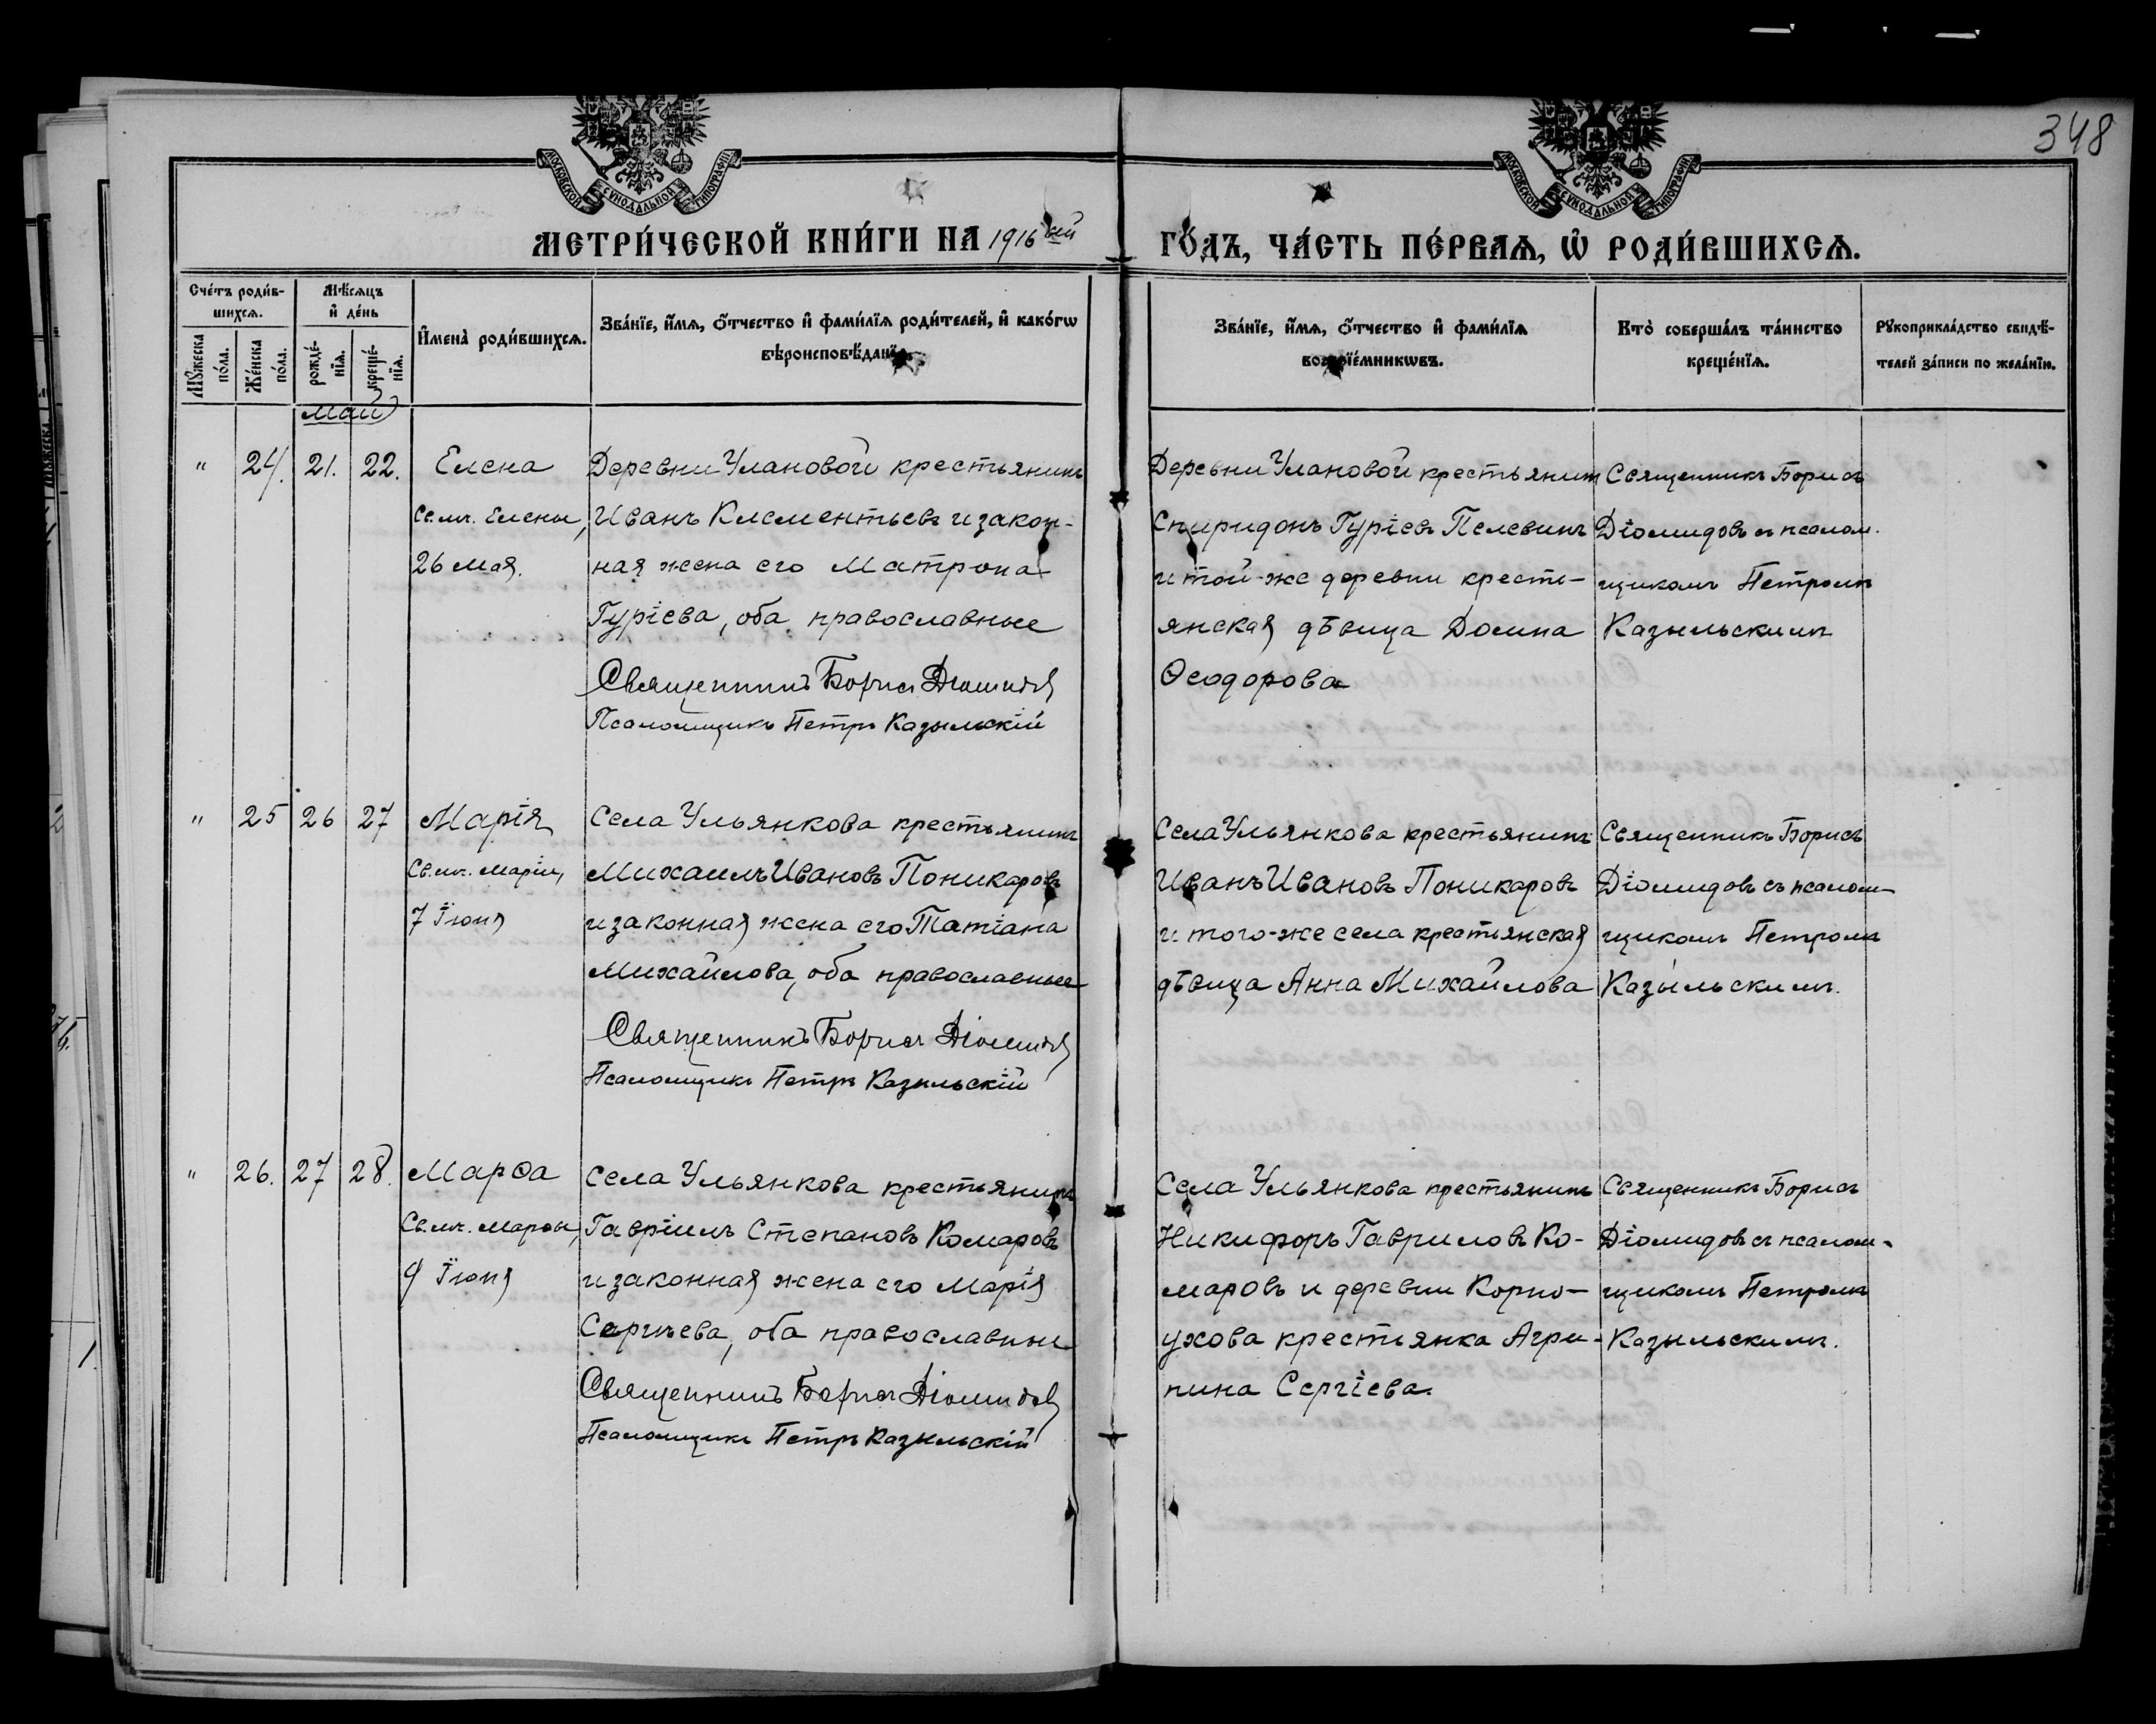 348
МОСКОВСКОЙ СУНОДАЛЬНОЙ ТИПОГРАФІИ
МОСКОВСКОЙ СУНОДАЛЬНОЙ ТИПОГРАФІИ
МЕТРИ́ЧЕСКОЙ КНИ́ГИ НА 1916ый
ГО́ДЪ, ЧА́СТЬ ПЕ́РВАѦ, Ѡ҆ РОДИ́ВШИХСѦ.
Сче́тъ роди́в-
шихсѧ.
Мѣ́сѧцъ
и҆ де́нь
Мꙋ́жеска по́ла.
Же́нска по́ла.
рожде́-
нїѧ.
креще́-
нїѧ.
И҆мена̀ роди́вшихсѧ.
Зва́нїе, и҆́мѧ, ѻ҆́тчество и҆ фами́лїѧ роди́телей, и҆ како́гѡ
вѣроисповѣ́данїѧ.
Зва́нїе, и҆́мѧ, ѻ҆́тчество и҆ фами́лїѧ
воспрїе́мникѡвъ.
Кто̀ соверша́лъ та́инство
креще́нїѧ.
Рꙋкоприкла́дство свидѣ́-
телей за́писи по жела́нїю.
Май
" 24. 21. 22. Елена
Св.мч. Елены,
26 мая.
Деревни Улановой крестьянинъ
Иванъ Клементьевъ и закон-
ная жена его Матрона
Гуріева, оба православные
Священникъ Борисъ Діомидовъ
Псаломщикъ Петръ Казыльскій
Деревни Улановой крестьянин
Спиридонъ Гуріевъ Пелевинъ
и той-же деревни кресть-
янская дѣвица Домна
Ѳеодорова
Священникъ Борисъ
Діомидовъ съ псалом-
щикомъ Петромъ
Казыльскимъ
" 25 26 27 Марія
Св.мч. Маріи,
7 Іюня
Села Ульянкова крестьянинъ
Михаилъ Ивановъ Поникаровъ
и законная жена его Татіана
Михайлова, оба православные
Священникъ Борисъ Діомидовъ
Псаломщикъ Петръ Казыльскій
Села Ульянкова крестьянинъ
Иванъ Ивановъ Поникаровъ
и того-же села крестьянская
дѣвица Анна Михайлова
Священникъ Борисъ
Діомидовъ съ псалом-
щикомъ Петромъ
Казыльскимъ.
" 26. 27 28. Марѳа
Св.мч. Марѳы,
9 Іюня
Села Ульянкова крестьянинъ
Гавріилъ Степановъ Комаровъ
и законная жена его Марія
Сергіева, оба православны
Священникъ Борисъ Діомидовъ
Псаломщикъ Петръ Казыльскій
Села Ульянкова крестьянинъ
Никифоръ Гавриловъ Ко-
маровъ и деревни Корно-
ухова крестьянка Агри-
пина Сергіева.
Священникъ Борисъ
Діомидовъ съ псалом-
щикомъ Петромъ
Казыльскимъ.